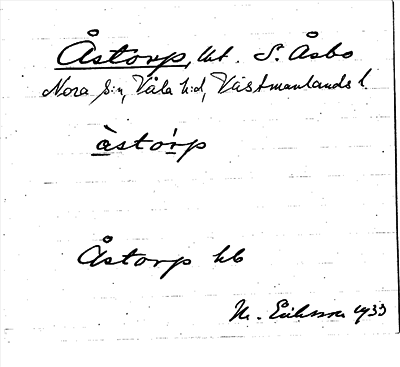 Åstorp, ut. S. Åsbo
Nora s:n, Våla h:d, Västmanlands l.
àstórp
Åstorp hb
M. Eriksson 1933